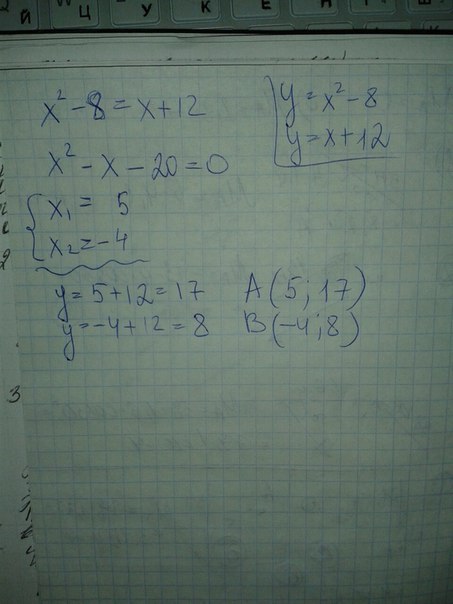 Й Ц У К Е Н
x² - 8 = x + 12
y = x² - 8
y = x + 12
x² - x - 20 = 0
x₁ = 5
x₂ = -4
y = 5 + 12 = 17 A (5; 17)
y = -4 + 12 = 8 B (-4; 8)
3